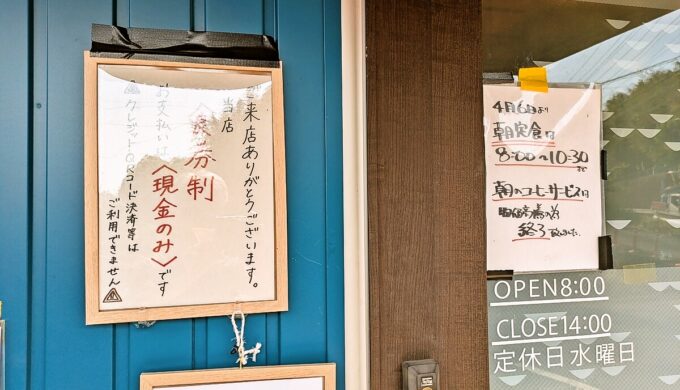 ご来店ありがとうございます。
当店
〈食券制〉
お支払いは
〈現金のみ〉です
⚠クレジット・QRコード決済等は
ご利用できません⚠
4月6日より
朝定食は
8:00〜10:30
まで
朝のコーヒーサービスは
終了致しました。
OPEN8:00
CLOSE14:00
定休日水曜日